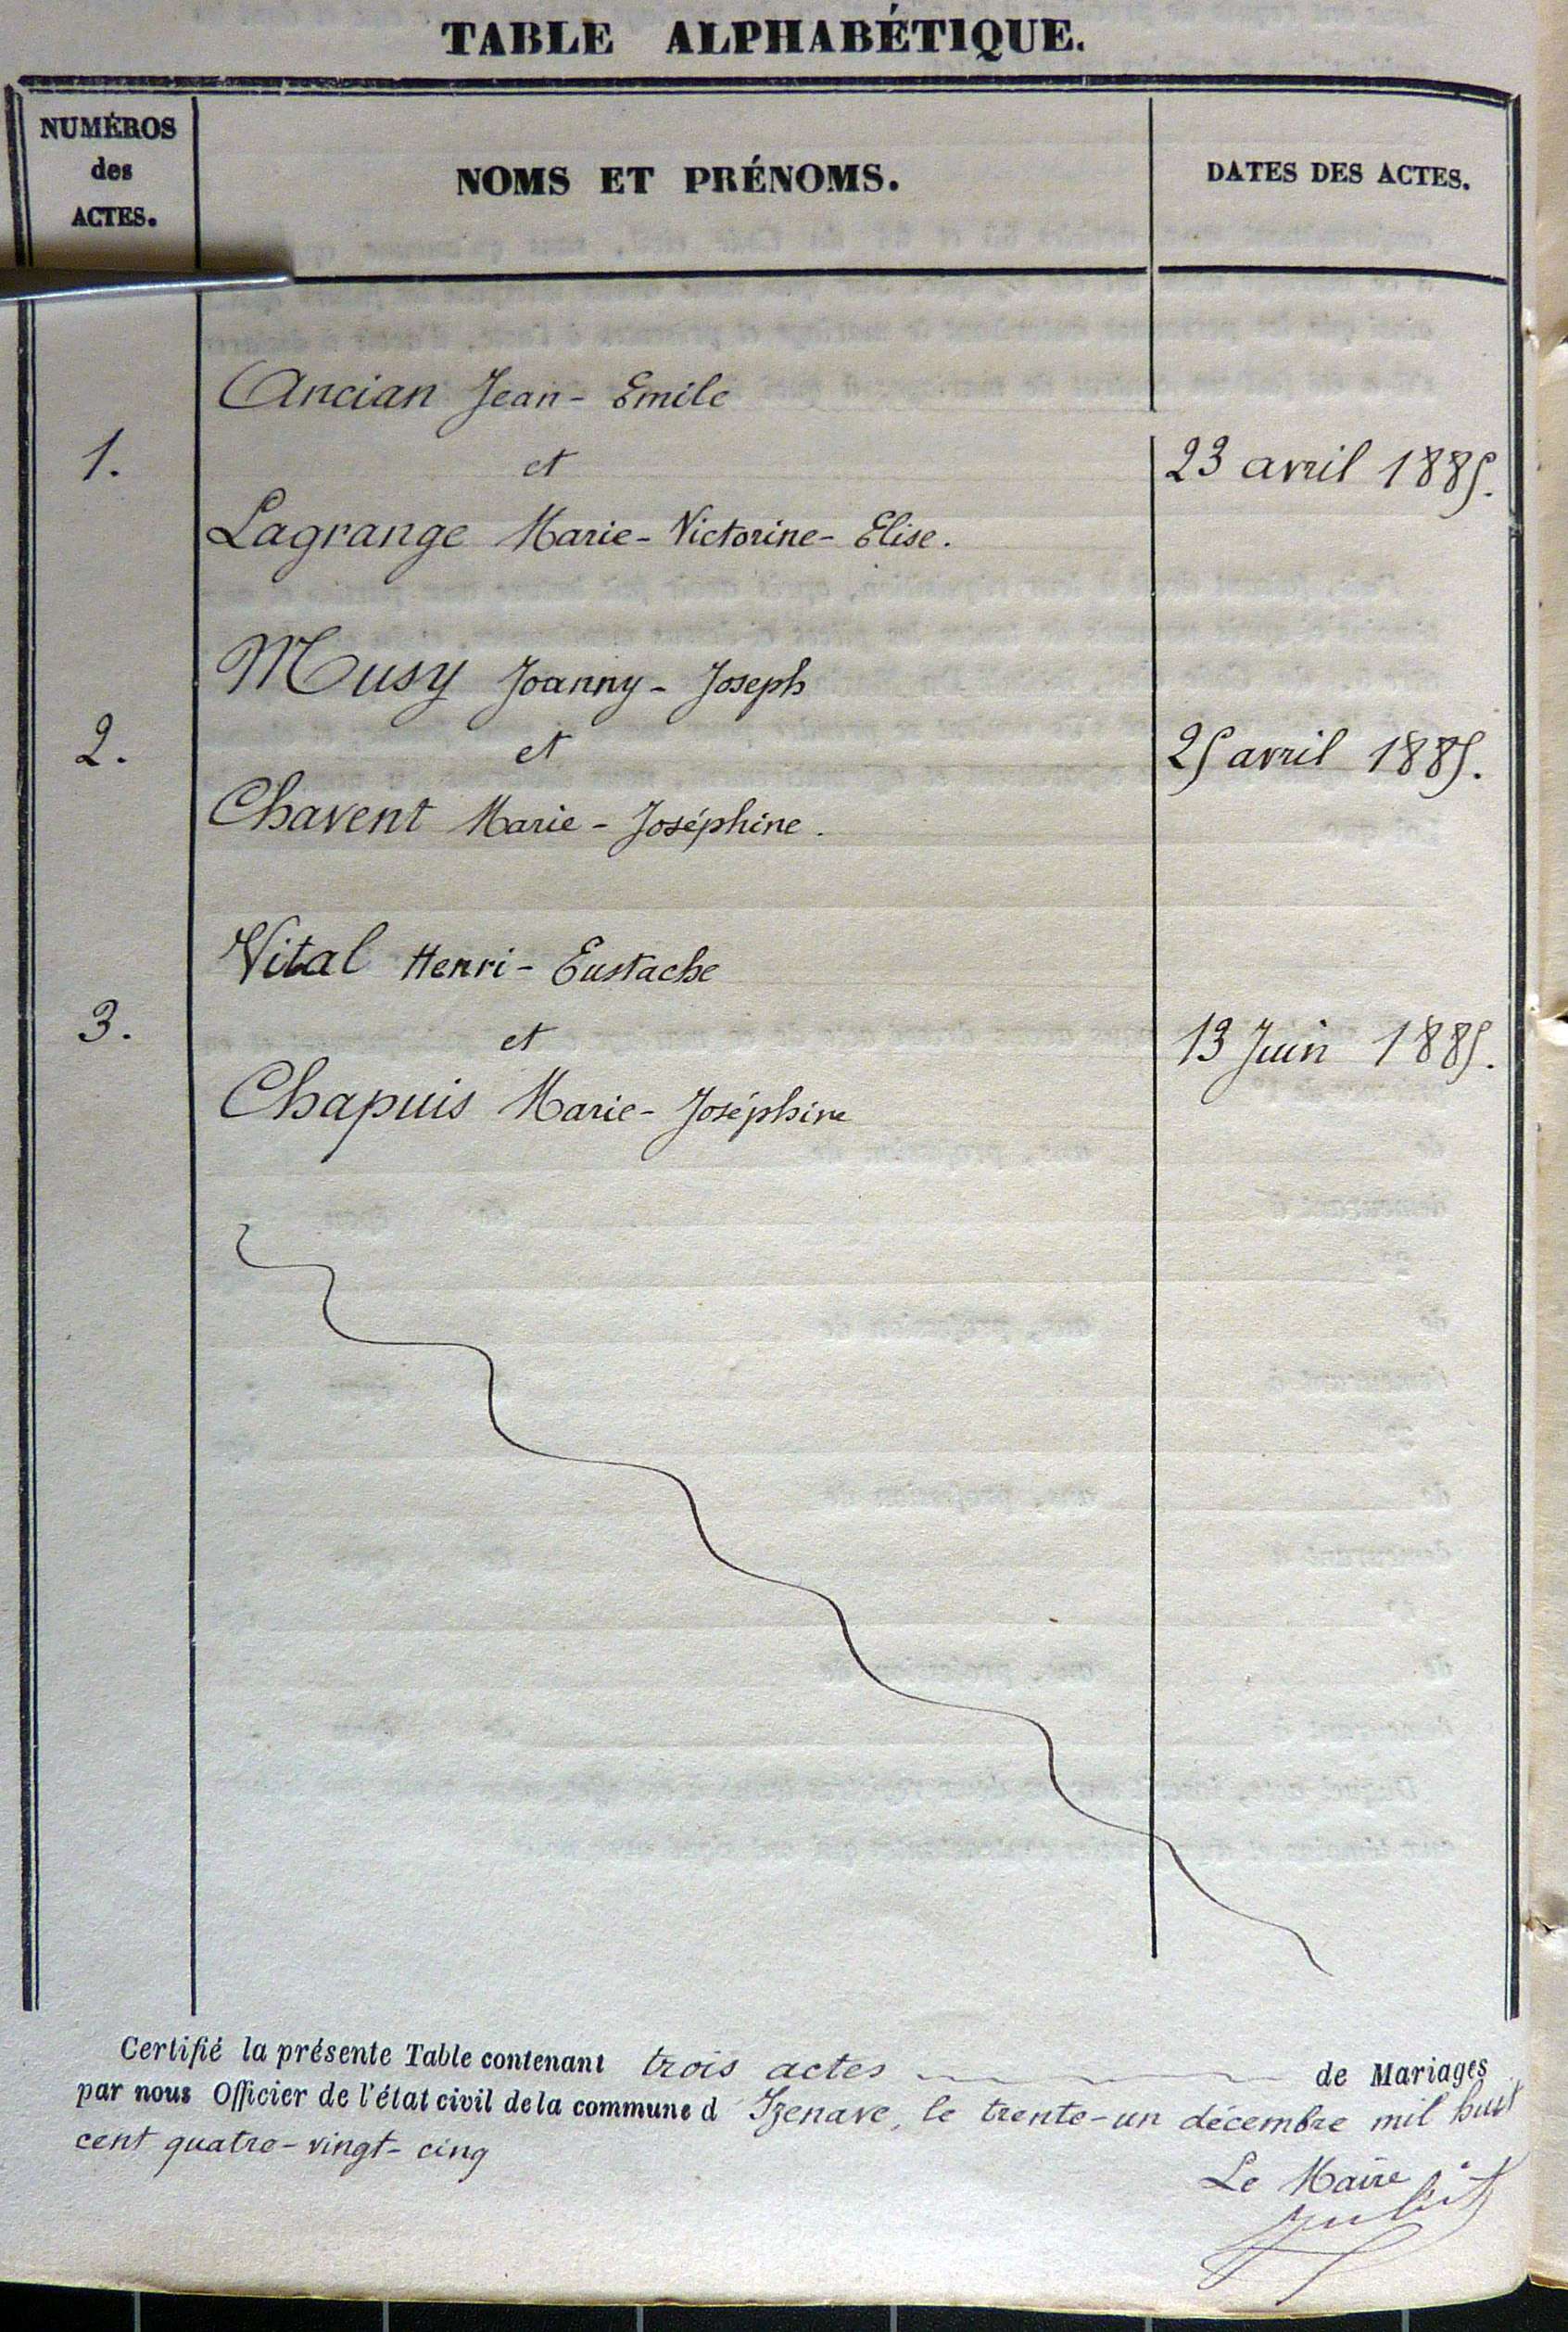 TABLE ALPHABÉTIQUE.
NUMÉROS
des
ACTES.
NOMS ET PRÉNOMS.
DATES DES ACTES.
Ancian Jean-Emile
1.
et
23 avril 1885.
Lagrange Marie-Victorine-Elise.
Musy Joanny-Joseph
2.
et
25 avril 1885.
Chavent Marie-Joséphine.
Vital Henri-Eustache
3.
et
13 Juin 1885.
Chapuis Marie-Joséphine
Certifié la présente Table contenant trois actes de Mariages
par nous Officier de l'état civil de la commune d Izenave, le trente-un décembre mil huit
cent quatre-vingt-cinq
Le Maire